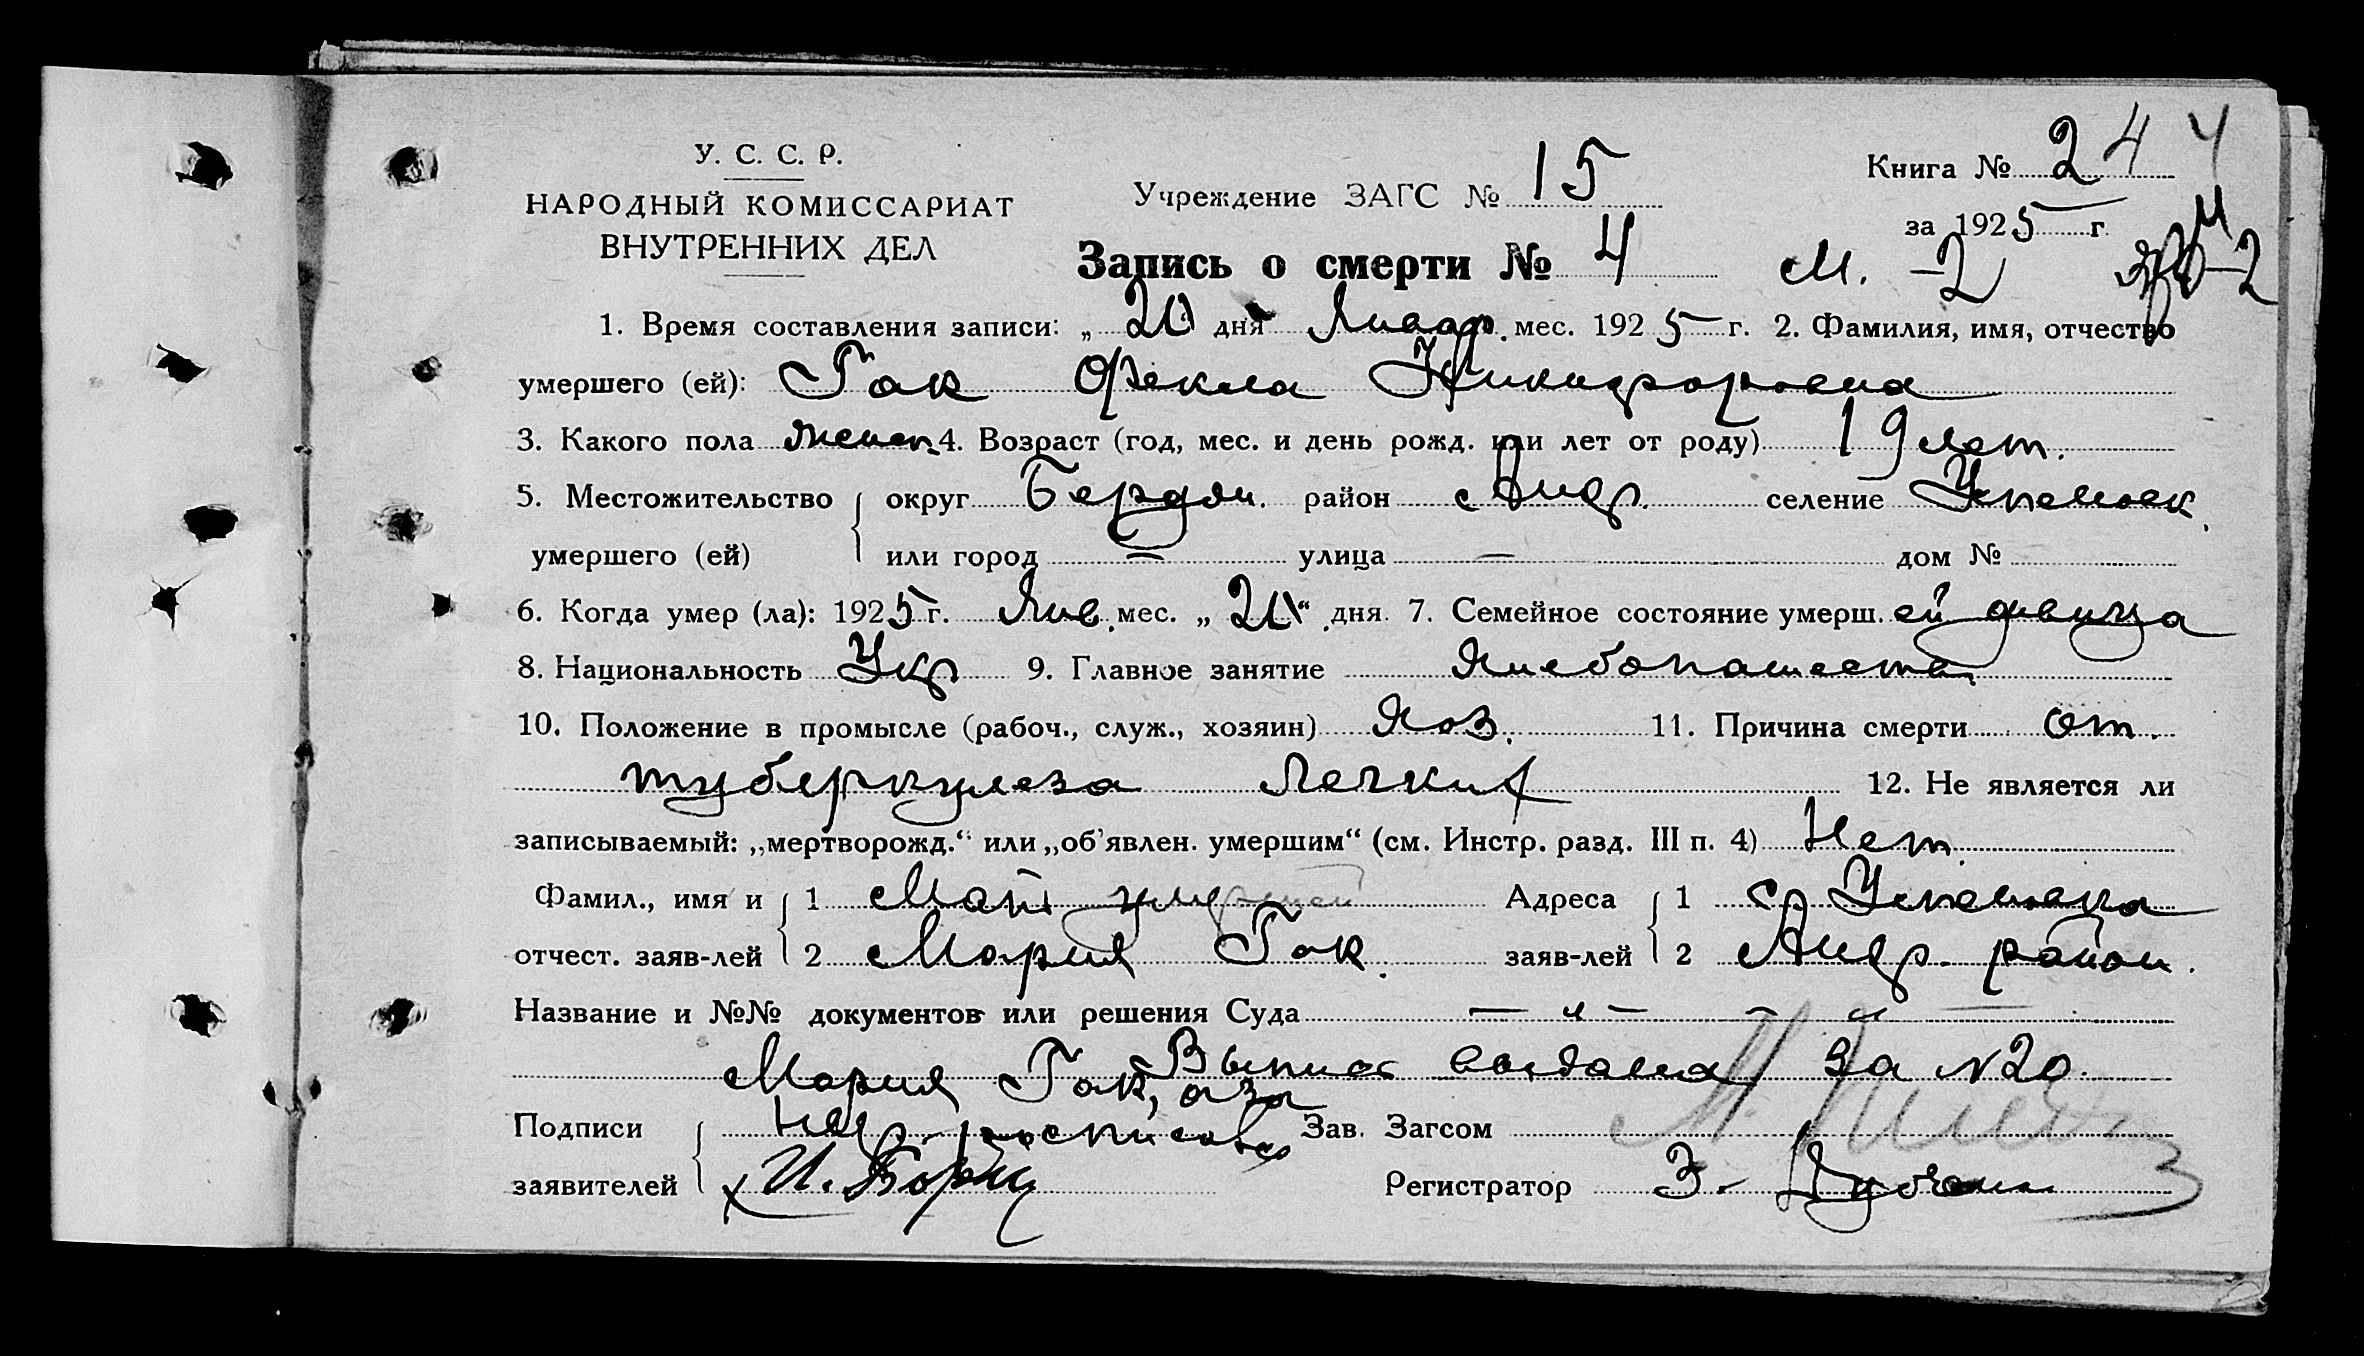 У. С. С. Р.
НАРОДНЫЙ КОМИССАРИАТ
ВНУТРЕННИХ ДЕЛ
Учреждение ЗАГС № 15
Книга № 2 4 4
за 1925 г.
Запись о смерти № 4 М. -2
1. Время составления записи: „ 20 дня Январ. мес. 1925 г. 2. Фамилия, имя, отчество
умершего (ей): Гак Фекла Никифоровна
3. Какого пола женск. 4. Возраст (год, мес. и день рожд. или лет от роду) 19 лет.
5. Местожительство округ Бердян. район Андр. селение Успеновк.
умершего (ей) или город — улица — дом №
6. Когда умер (ла): 1925 г. Янв. мес. „ 20 “ дня. 7. Семейное состояние умерш. ей девица
8. Национальность Укр 9. Главное занятие Хлебопашеств.
10. Положение в промысле (рабоч., служ., хозяин) Хоз. 11. Причина смерти от
туберкулеза Легких 12. Не является ли
записываемый: „мертворожд.“ или „об'явлен. умершим“ (см. Инстр. разд. III п. 4) Нет.
Фамил., имя и 1 Мать умершей Адреса 1 с. Успеновка
отчест. заяв-лей 2 Мария Гак. заяв-лей 2 Андр. район.
Название и №№ документов или решения Суда — „ — — „ —
Мария Гак, а за Выпись выдана за №20.
Подписи негр. росписался Зав. Загсом
заявителей И. Регистратор З.